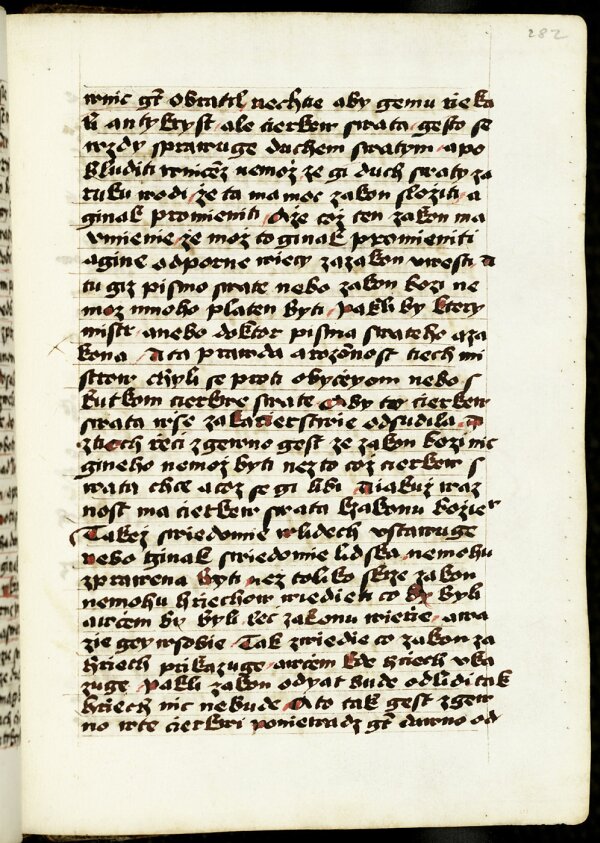 282
wnic gt obratil nechtie aby gemu rieka
li antykryst ale cierkew swata gesto se
wzdy sprawuge duchem swatym a po
kluditi wniczez nemoz ze gi duch swaty za
ruku wodi ze ta ma moc zakon sloziti a
ginak promieniti A ze coz ten zakon ma
vmienie ze moz to ginak promieniti
a gine odporne wiecy za zakon vwesti A
tu giz pismo swate nebo zakon bozi ne
moz mnoho platen byti Pakli by ktery
mistr anebo doktor pisma swateho a za
kona A ta prawda a rozomnost tiech mi
strow chyli se proti obyczeyom nebo s
kutkom cierkwe swate Aby ty cierkew
swata wse za kacierstwie odsudila A
z tiech reci zgewno gest ze zakon bozi nic
gineho nemoz byti nez to coz cierkew s
wata chce a coz se gi libi A iakuz waz
nost ma cierkew swata k zakonu boziem
Takez swiedomie w lidech vstawuge
nebo ginak swiedomie lidska nemohu
zprawena byti nez toliko skrze zakon
nemohu hriechow wiedieti co by byli
awssem by byli lec zakonu wierie a wa
zie gey w sobie Tak zwiedie co zakon za
hriech prikazuge awssem kde hriech vka
zuge Pakli zakon odyat bude od lidi tak
hriech nic nebude A to tak gest zgew
no w te cierkwi poniewadz gt dawno od